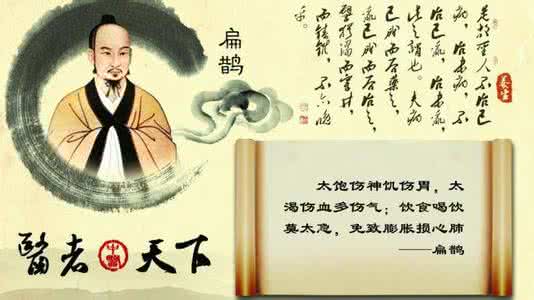 扁鹊
是故聖人不治已
病，治未病，不
治已亂，治未亂，
此之謂也。夫病
已成而后藥之，
亂已成而后治之，
譬猶渴而穿井，
不亦晚
乎。
養生
太饱伤神饥伤胃，太
渴伤血多伤气；饮食喝饮
莫太急，免致膨胀损心肺
——扁鹊
醫者
天下